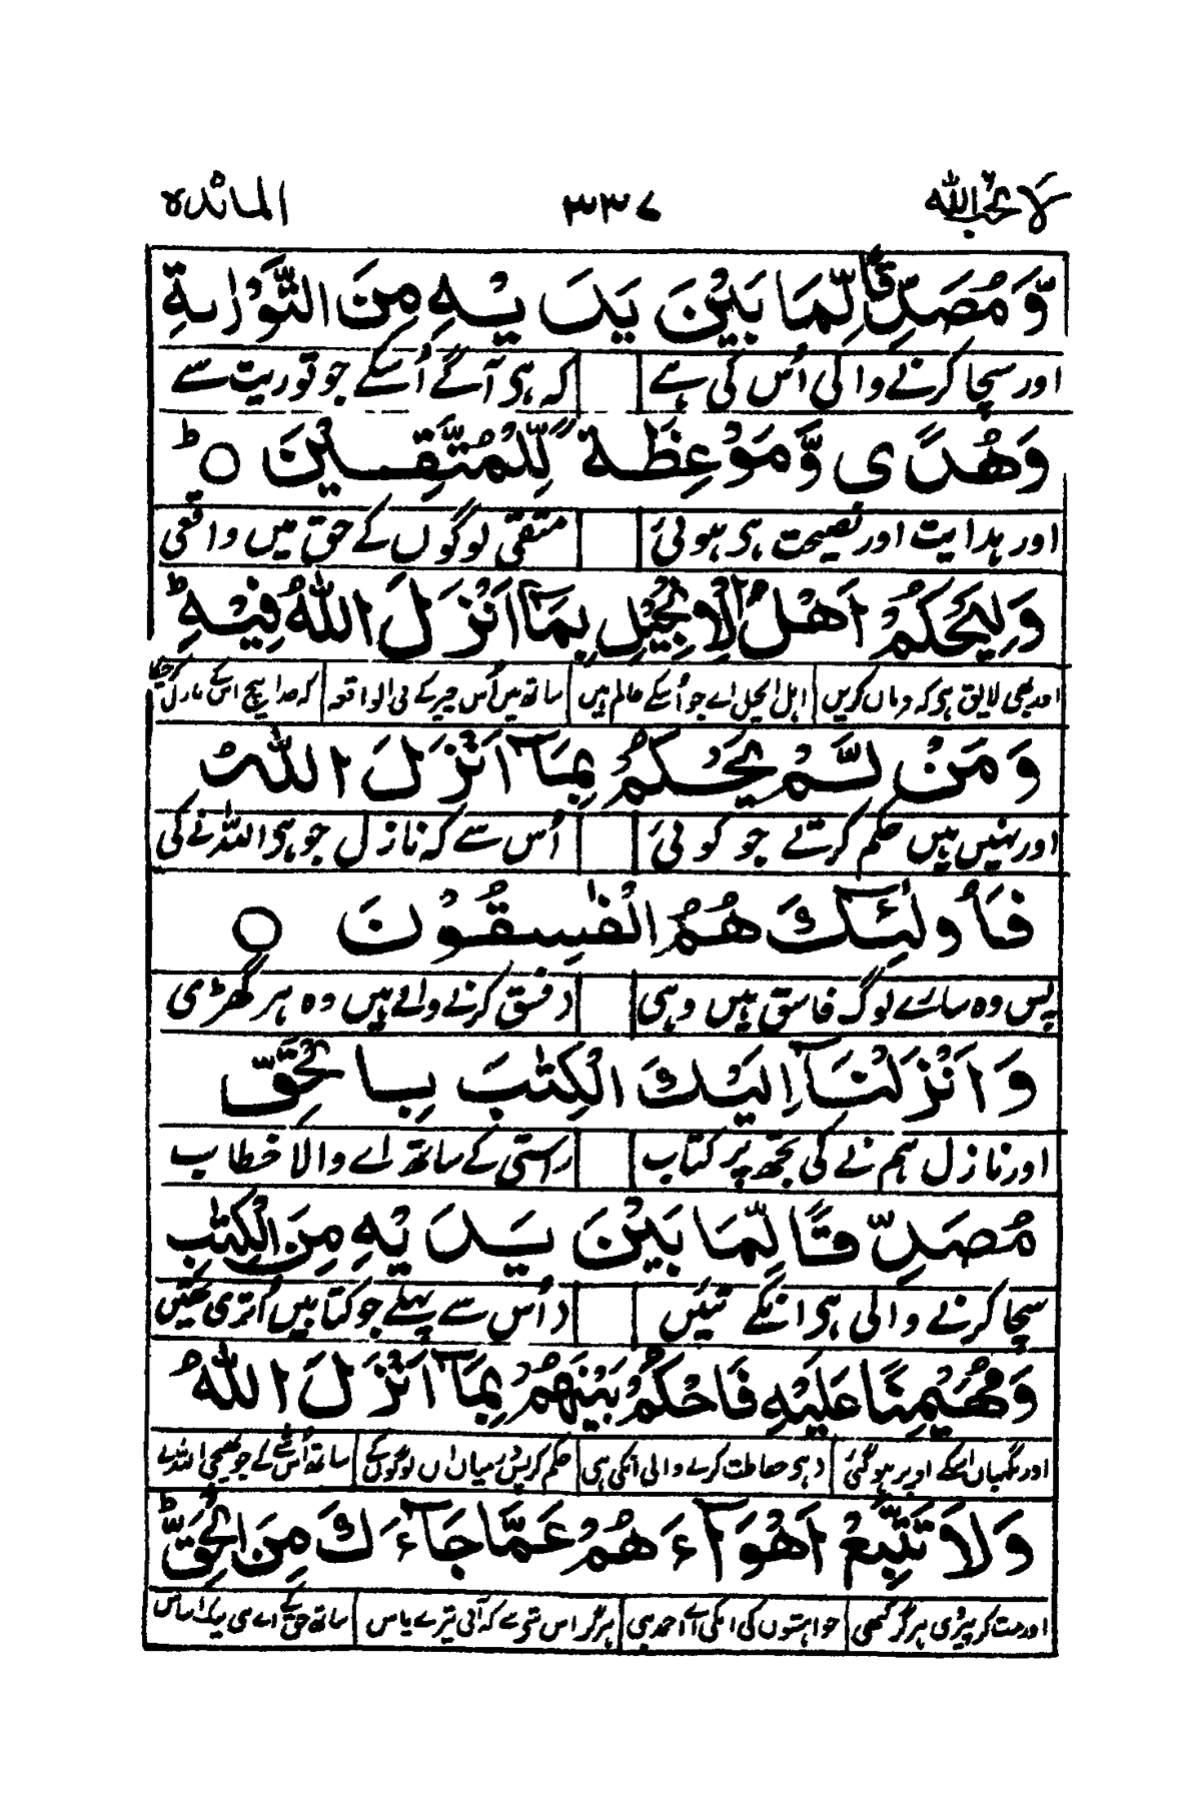 لا یحب اللہ ۳۳۷ المائدہ
وَّ مُصَدِّقًا لِّمَا بَيْنَ يَدَيْهِ مِنَ التَّوْرٰىةِ
اور سچا کرنے والی اُس کی ہے کہ ہی آگے اُسکے جو توریت سے
وَهُدًى وَّ مَوْعِظَةً لِّلْمُتَّقِيْنَ ○ ؕ
اور ہدایت اور نصیحت ہی ہوئی متقی لوگوں کے حق میں واقعی
وَلْيَحْكُمْ اَهْلُ الْاِنْجِيْلِ بِمَآ اَنْزَلَ اللّٰهُ فِيْهِ ؕ
اور بھی لایق ہی کہ فرماں کریں اہل انجیل اے جو اُسکے عالم ہیں ساتھ میں اُس چیز کے فی الواقعہ کہ خدا بیچ اسکے نازل
وَ مَنْ لَّمْ يَحْكُمْ بِمَآ اَنْزَلَ اللّٰهُ
اور نہیں ہیں حکم کرتے جو کوئی اُس سے کہ نازل جو ہی اللہ نے کی
فَاُولٰٓئِكَ هُمُ الْفٰسِقُوْنَ ○
پس وہ سارے لوگ فاسق ہیں وہی فسق کرنے والے ہیں وہ ہر گھڑی
وَ اَنْزَلْنَآ اِلَيْكَ الْكِتٰبَ بِالْحَقِّ
اور نازل ہم نے کی تجھ پر کتاب راستی کے ساتھ اے والا خطاب
مُصَدِّقًا لِّمَا بَيْنَ يَدَيْهِ مِنَ الْكِتٰبِ
سچا کرنے والی ہی انکے تئیں اُس سے پہلے جو کتابیں اُتری تھیں
وَ مُهَيْمِنًا عَلَيْهِ فَاحْكُمْ بَيْنَهُمْ بِمَآ اَنْزَلَ اللّٰهُ
اور نگہباں اسکے اوپر ہو گئی حفاظت کرنے والی انکی ہی حکم کر پس درمیاں اں لوگوں کے ساتھ اُسکے جو بھیجی اللہ نے
وَلَا تَتَّبِعْ اَهْوَآءَهُمْ عَمَّا جَآءَكَ مِنَ الْحَقِّ ؕ
اور مت کر پیروی ہرگز کبھی خواہشوں کی انکی اے احمد ہرگز اس سے کہ آئی تیرے پاس ساتھ حق کے اے